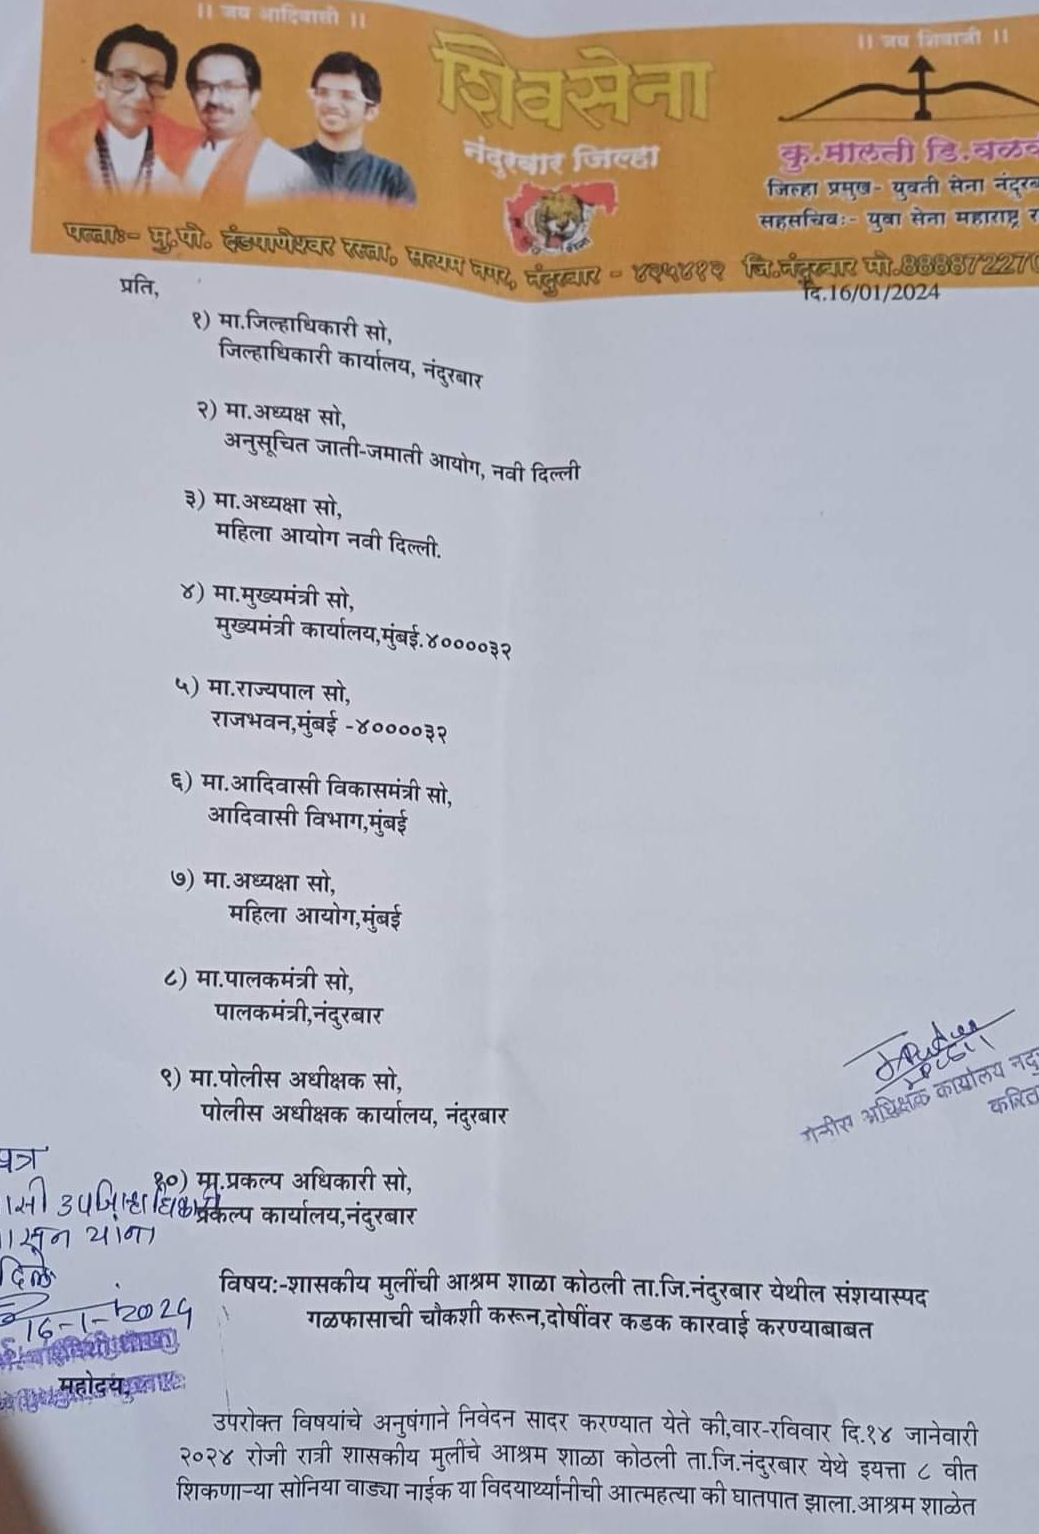 ।। जय आदिवासी ।।
।। जय शिवाजी ।।
शिवसेना
नंदुरबार जिल्हा
कु.मालती डि.वळव
जिल्हा प्रमुख- युवती सेना नंदुरब
सहसचिवः- युवा सेना महाराष्ट्र र
पत्ताः- मु.पो. दंडपाणेश्वर रस्ता, सत्यम नगर, नंदुरबार - ४२५४१२ जि.नंदूरबार मो.888872270
दि.16/01/2024
प्रति,
१) मा.जिल्हाधिकारी सो,
जिल्हाधिकारी कार्यालय, नंदुरबार
२) मा.अध्यक्ष सो,
अनुसूचित जाती-जमाती आयोग, नवी दिल्ली
३) मा.अध्यक्षा सो,
महिला आयोग नवी दिल्ली.
४) मा.मुख्यमंत्री सो,
मुख्यमंत्री कार्यालय,मुंबई.४००००३२
५) मा.राज्यपाल सो,
राजभवन,मुंबई -४००००३२
६) मा.आदिवासी विकासमंत्री सो,
आदिवासी विभाग,मुंबई
७) मा.अध्यक्षा सो,
महिला आयोग,मुंबई
८) मा.पालकमंत्री सो,
पालकमंत्री,नंदुरबार
९) मा.पोलीस अधीक्षक सो,
पोलीस अधीक्षक कार्यालय, नंदुरबार
पोलीस अधिक्षक कार्यालय नंदु
करित
१०) मा.प्रकल्प अधिकारी सो,
प्रकल्प कार्यालय,नंदुरबार
पत्र
उपजिल्हाधिकारी
यांना
16-1-2024
विषय:-शासकीय मुलींची आश्रम शाळा कोठली ता.जि.नंदुरबार येथील संशयास्पद
गळफासाची चौकशी करून,दोषींवर कडक कारवाई करण्याबाबत
महोदय,
उपरोक्त विषयांचे अनुषंगाने निवेदन सादर करण्यात येते की,वार-रविवार दि.१४ जानेवारी
२०२४ रोजी रात्री शासकीय मुलींचे आश्रम शाळा कोठली ता.जि.नंदुरबार येथे इयत्ता ८ वीत
शिकणाऱ्या सोनिया वाड्या नाईक या विदयार्थ्यांनीची आत्महत्या की घातपात झाला.आश्रम शाळेत